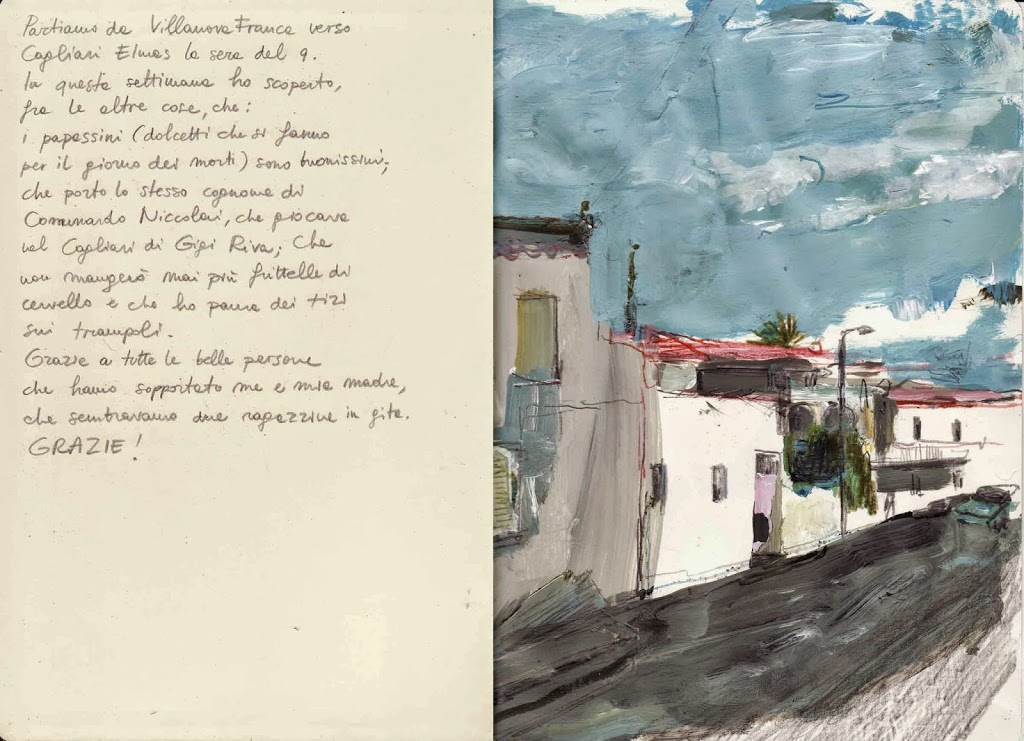 Partiamo da Villanova Franca verso
Cagliari Elmas la sera del 9.
In questa settimana ho scoperto,
fra le altre cose, che:
i papassini (dolcetti che si fanno
per il giorno dei morti) sono buonissimi;
che porto lo stesso cognome di
Comunardo Niccolai, che giocava
nel Cagliari di Gigi Riva; che
non mangerò mai più frittelle di
cervello e che ho paura dei tizi
sui trampoli.
Grazie a tutte le belle persone
che hanno sopportato me e mia madre,
che sembravamo due ragazzine in gita.
GRAZIE!